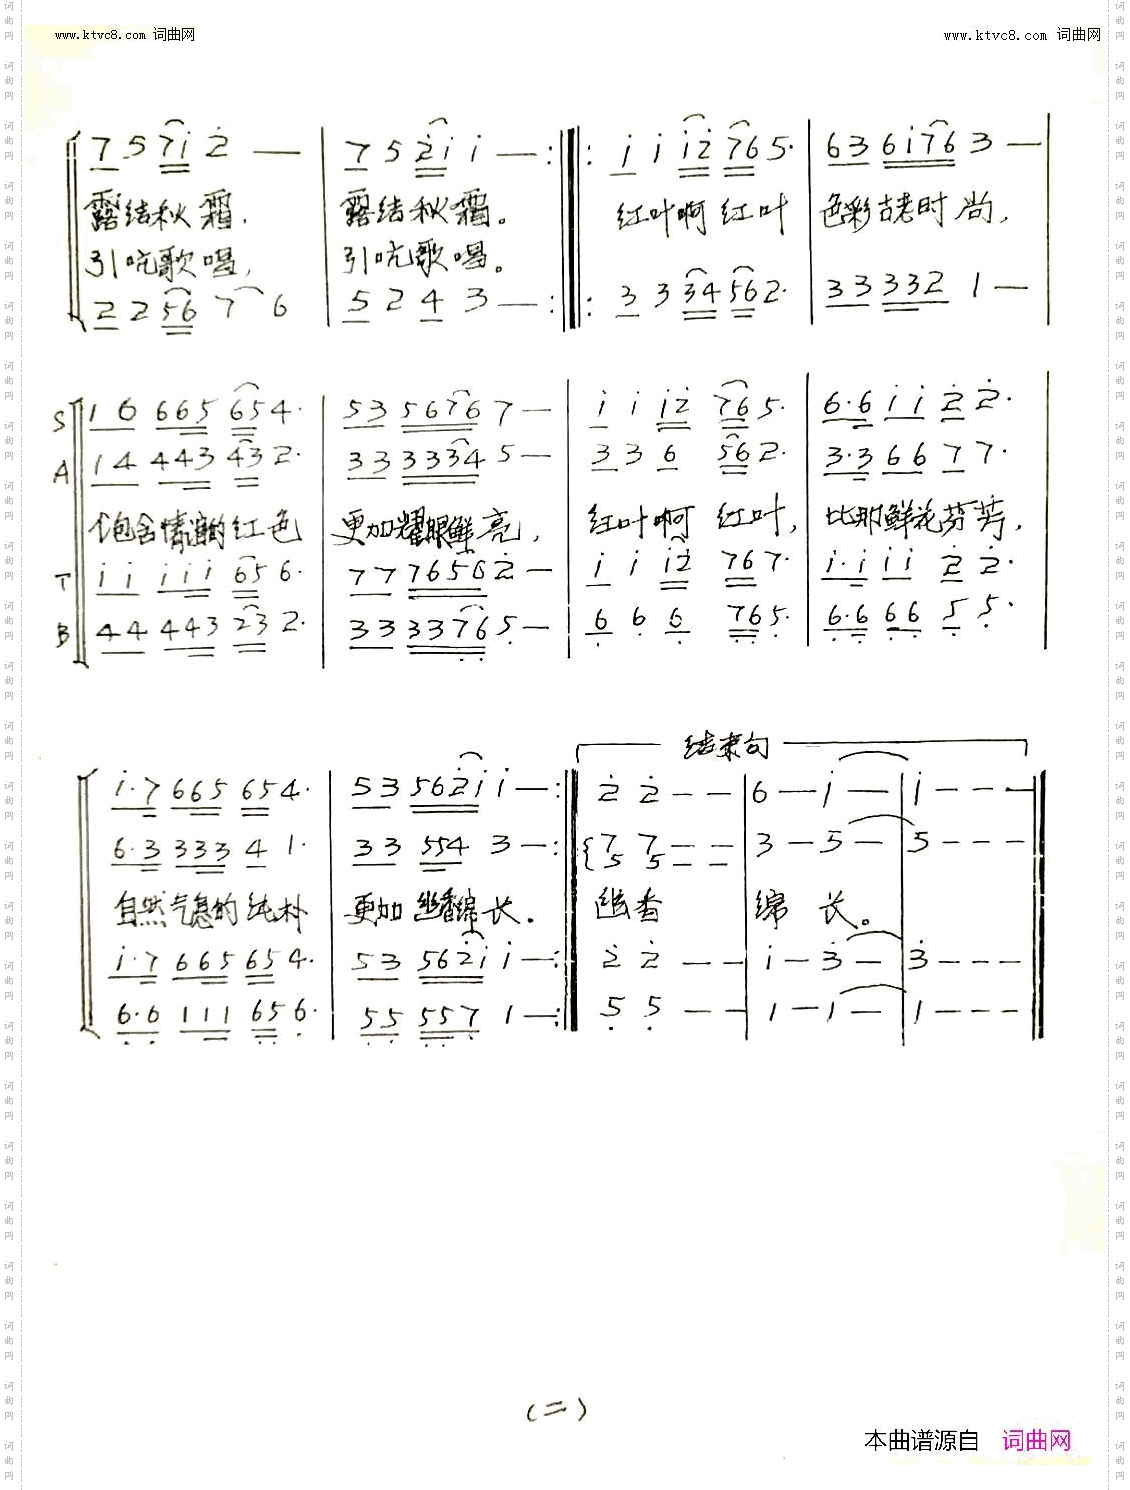 www.ktvc8.com 词曲网 www.ktvc8.com 词曲网
7 5 7i 2 — 7 5 2i i —: :i i i2 765· 63 6i76 3 —
露结秋霜, 露结秋霜。 红叶啊 红叶 色彩古老时尚,
引吭歌唱, 引吭歌唱。
2 2 56 7 6 5 2 4 3 —: :3 3 34 562· 33 332 1 —
S 16 665 654· 53 5676 7 — i i i2 765· 6·6 ii 2 2·
A 14 443 432· 33 3334 5 — 3 3 6 562· 3·3 66 7 7·
饱含情谊的红色 更加耀眼鲜亮, 红叶啊 红叶, 比那鲜花芬芳,
T ii iii 656· 77 7656 2 — i i i2 767· i·i ii 2 2·
B 44 443 232· 33 3376 5 — 6 6 6 765· 6·6 66 5 5·
结束句
i·7 665 654· 53 562i i —: 2 2 — — 6 — i — i — — —
6·3 333 4 1· 33 554 3 —: 7 7 — — 3 — 5 — 5 — — —
5 5 — —
自然气息的纯朴 更加幽香绵长。 幽香 绵 长。
i·7 665 654· 53 562i i —: 2 2 — — i — 3 — 3 — — —
6·6 111 656· 55 557 1 —: 5 5 — — 1 — 1 — 1 — — —
(二)
本曲谱源自 词曲网